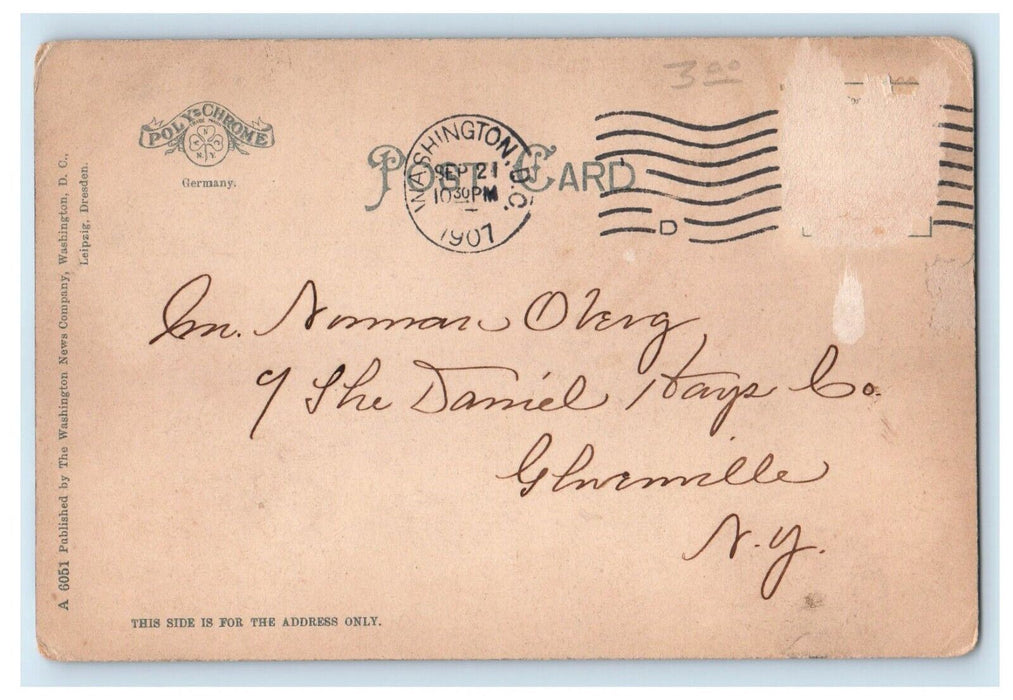 3 00
POLY-CHROME
TRADE MARK
N
N.Y.
Germany.
POST CARD
WASHINGTON, D.C.
SEP 21
10 30 PM
1907
D
Mr. Norman Oberg
% The Daniel Hays Co.
Gloversville
N.Y.
A 6051 Published by The Washington News Company, Washington, D. C.,
Leipzig, Dresden.
THIS SIDE IS FOR THE ADDRESS ONLY.